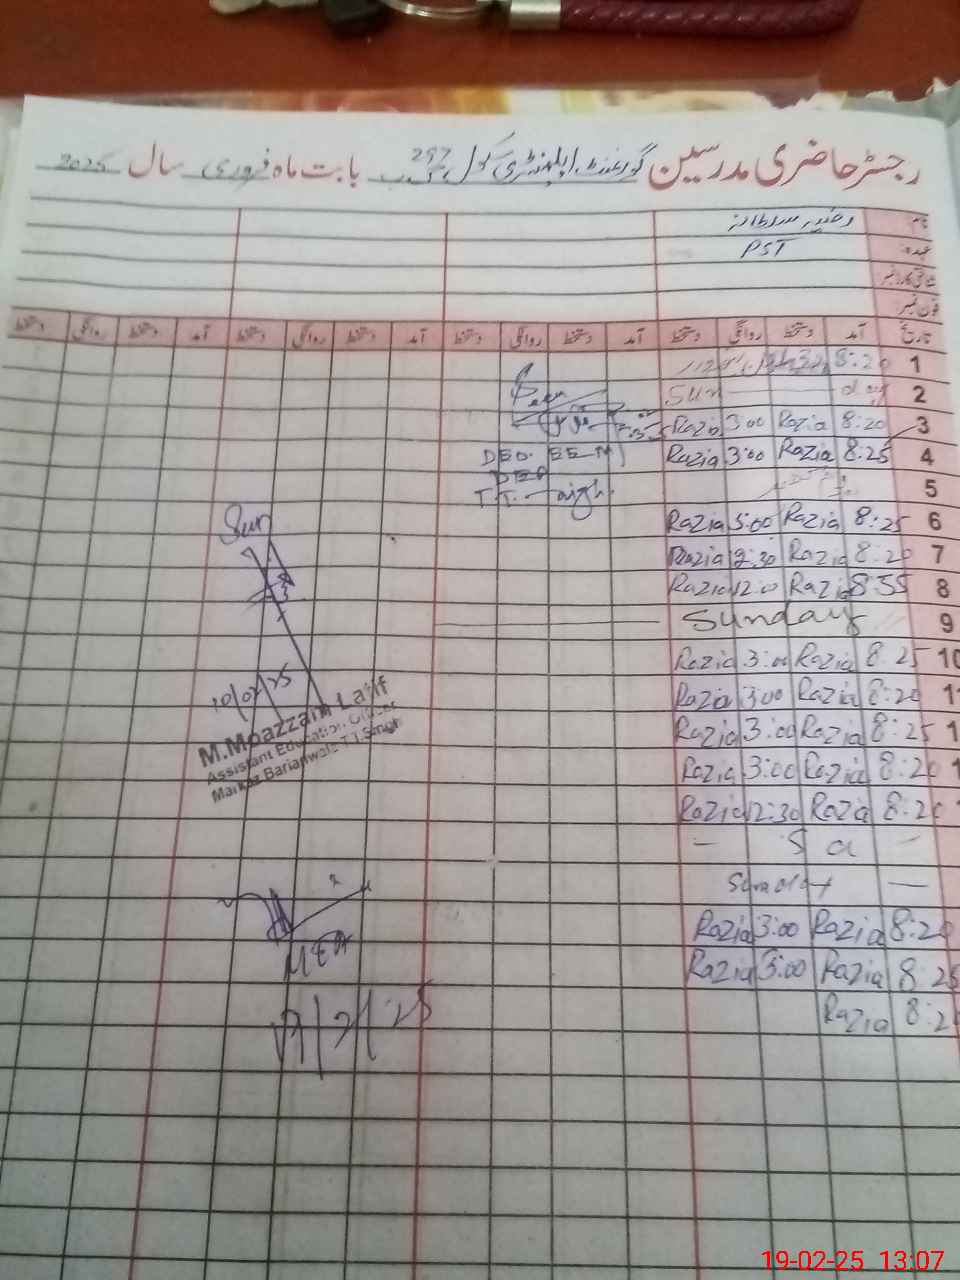 رجسٹر حاضری مدرسین گورنمنٹ ایلیمنٹری سکول 297 بابت ماہ فروری سال 2025
نام رضیہ سلطانہ
عہدہ PST
شناختی کارڈ نمبر
فون نمبر
تاریخ آمد دستخط روانگی دستخط آمد دستخط روانگی دستخط آمد دستخط روانگی دستخط آمد دستخط روانگی دستخط
1 8:20
2 Sun day
3 8:20 Razia 3:00 Razia
4 8:25 Razia 3:00 Razia
DEO. EE-M
5
6 8:25 Razia 3:00 Razia
7 8:20 Razia 12:30 Razia
8 8:35 Razia 12:0 Razia
9 Sunday
10 8:25 Razia 3:00 Razia
1 8:20 Razia 3:00 Razia
1 8:25 Razia 3:00 Razia
1 8:20 Razia 3:00 Razia
8:20 Razia 12:30 Razia
S a
Sunday
8:20 Razia 3:00 Razia
8:25 Razia 3:00 Razia
8:2 Razia
10/02/25
M.Moazzam Latif
Assistant Education Officer
Markaz Barianwala T.T.Singh
MEA
19-02-25 13:07